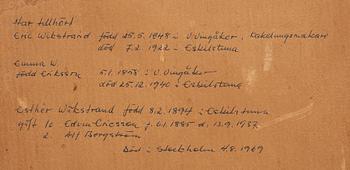 Har tillhört
Eric Wikstrand född 25.5.1848 i V. Vingåker, Kakelugnsmakare
död 7.2.1922 i Eskilstuna
Emma W.
född Eriksson 5.1.1858 i V. Vingåker
död 25.12.1940 i Eskilstuna
Esther Wikstrand född 8.2.1894 i Eskilstuna
gift 1. Edvin Ericsson f. 6.1.1885 d. 13.9.1937
2. Alf Bergström
Död i Stockholm 4.8.1969